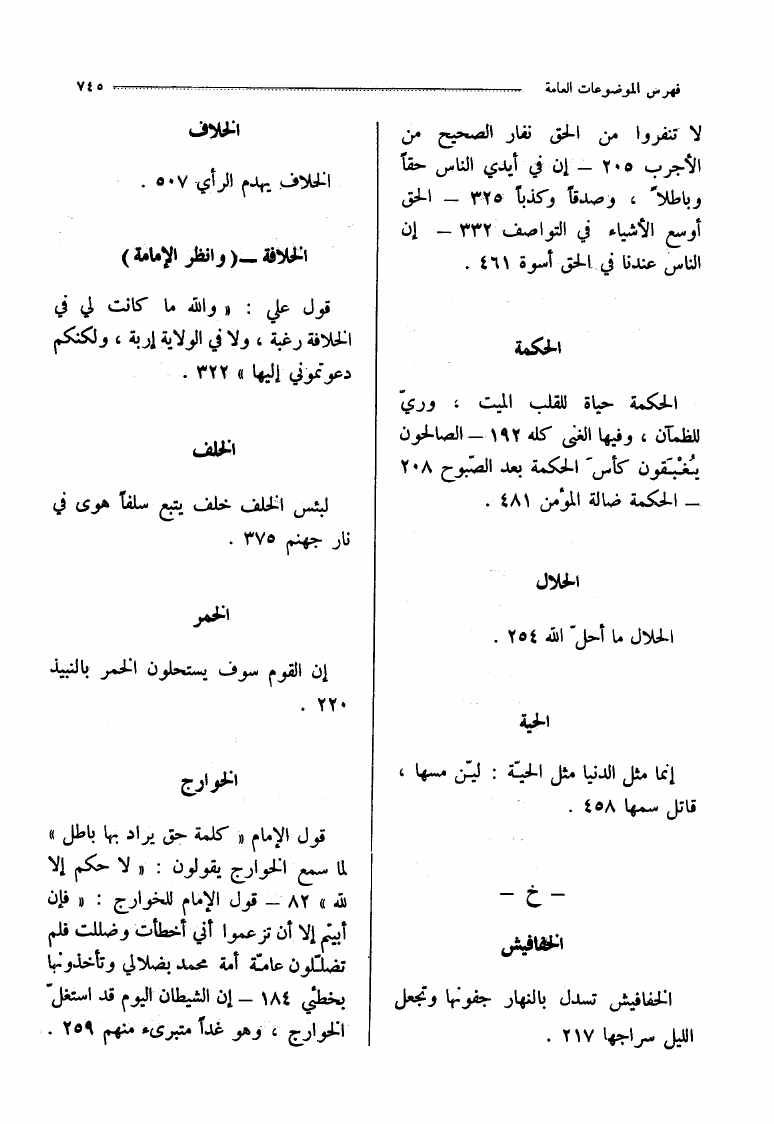 فهرس الموضوعات العامة ٧٤٥
لا تنفروا من الحق نفار الصحيح من
الأجرب ٢٠٥ – إن في أيدي الناس حقاً
وباطلاً ، وصدقاً وكذباً ٣٢٥ – الحق
أوسع الأشياء في التواصف ٣٣٢ – إن
الناس عندنا في الحق أسوة ٤٦١ .
الحكمة
الحكمة حياة للقلب الميت ، وريّ
للظمآن ، وفيها الغنى كله ١٩٢ – الصالحون
يُغْبَقون كأسَ الحكمة بعد الصّبوح ٢٠٨
– الحكمة ضالة المؤمن ٤٨١ .
الحلال
الحلال ما أحلّ الله ٢٥٤ .
الحية
إنما مثل الدنيا مثل الحيّة : ليّن مسها ،
قاتل سمها ٤٥٨ .
– خ –
الخفافيش
الخفافيش تسدل بالنهار جفونها وتجعل
الليل سراجها ٢١٧ .
الخلاف
الخلاف يهدم الرأي ٥٠٧ .
الخلافة –( وانظر الإمامة )
قول علي : « والله ما كانت لي في
الخلافة رغبة ، ولا في الولاية إربة ، ولكنكم
دعوتموني إليها » ٣٢٢ .
الخلف
لبئس الخلف خلف يتبع سلفاً هوى في
نار جهنم ٣٧٥ .
الخمر
إن القوم سوف يستحلون الخمر بالنبيذ
٢٢٠ .
الخوارج
قول الإمام « كلمة حق يراد بها باطل »
لما سمع الخوارج يقولون : « لا حكم إلا
لله » ٨٢ – قول الإمام للخوارج : « فإن
أبيتم إلا أن تزعموا أني أخطأت وضللت فلم
تضلّلون عامّة أمة محمد بضلالي وتأخذونها
بخطئي ١٨٤ – إن الشيطان اليوم قد استغلّ
الخوارج ، وهو غداً متبرىء منهم ٢٥٩ .